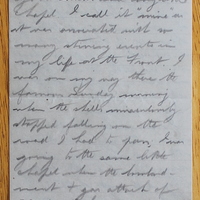 Chapel I call it mine as
it was associated with so
many stirring events in
my life at the Front. I
was on my way there the
famous Sunday morning
when the shells miraculously
stopped falling on the
road I had to pass, I was
going to the same little
Chapel when the bombard-
ment & gas attack of